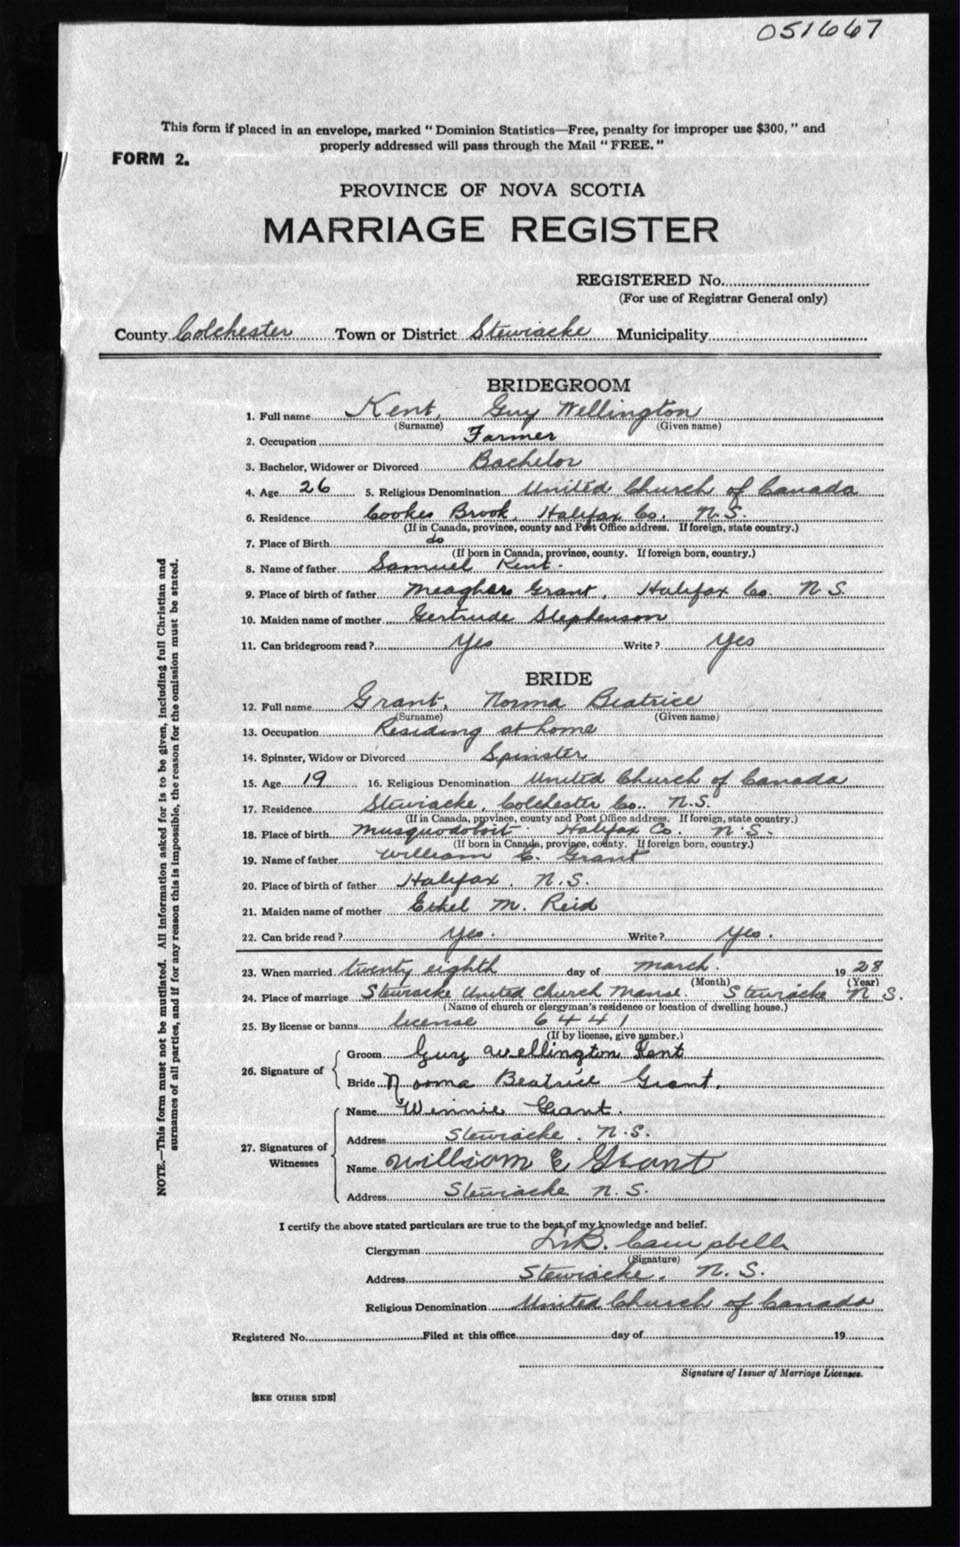 051667
This form if placed in an envelope, marked "Dominion Statistics—Free, penalty for improper use $300," and
properly addressed will pass through the Mail "FREE."
FORM 2.
PROVINCE OF NOVA SCOTIA
MARRIAGE REGISTER
REGISTERED No.
(For use of Registrar General only)
County Colchester Town or District Stewiacke Municipality
BRIDEGROOM
1. Full name Kent, Guy Wellington
(Surname) (Given name)
2. Occupation Farmer
3. Bachelor, Widower or Divorced Bachelor
4. Age 26 5. Religious Denomination United Church of Canada
6. Residence Cookes Brook, Halifax Co. N.S.
(If in Canada, province, county and Post Office address. If foreign, state country.)
7. Place of Birth do
(If born in Canada, province, county. If foreign born, country.)
8. Name of father Samuel Kent.
9. Place of birth of father Meaghers Grant, Halifax Co. N S
10. Maiden name of mother Gertrude Stephenson
11. Can bridegroom read? Yes Write? Yes
BRIDE
12. Full name Grant, Norma Beatrice
(Surname) (Given name)
13. Occupation Residing at home
14. Spinster, Widow or Divorced Spinster
15. Age 19 16. Religious Denomination United Church of Canada
17. Residence Stewiacke, Colchester Co. N.S.
(If in Canada, province, county and Post Office address. If foreign, state country.)
18. Place of birth Musquodoboit Halifax Co. N.S.
(If born in Canada, province, county. If foreign born, country.)
19. Name of father William E. Grant
20. Place of birth of father Halifax. N.S.
21. Maiden name of mother Ethel M. Reid
22. Can bride read? Yes. Write? Yes.
23. When married twenty eighth day of March. 19 28
(Month) (Year)
24. Place of marriage Stewiacke United Church Manse. Stewiacke N S.
(Name of church or clergyman's residence or location of dwelling house.)
25. By license or banns license 6441
(If by license, give number.)
26. Signature of
Groom Guy Wellington Kent
Bride Norma Beatrice Grant.
27. Signatures of
Witnesses
Name Winnie Grant.
Address Stewiacke. N.S.
Name William E Grant
Address Stewiacke N.S.
I certify the above stated particulars are true to the best of my knowledge and belief.
Clergyman B. Campbell
(Signature)
Address Stewiacke, N.S.
Religious Denomination United Church of Canada
Registered No. Filed at this office day of 19
Signature of Issuer of Marriage Licenses.
[SEE OTHER SIDE]
NOTE.—This form must not be mutilated. All information asked for is to be given, including full Christian and
surnames of all parties, and if for any reason this is impossible, the reason for the omission must be stated.